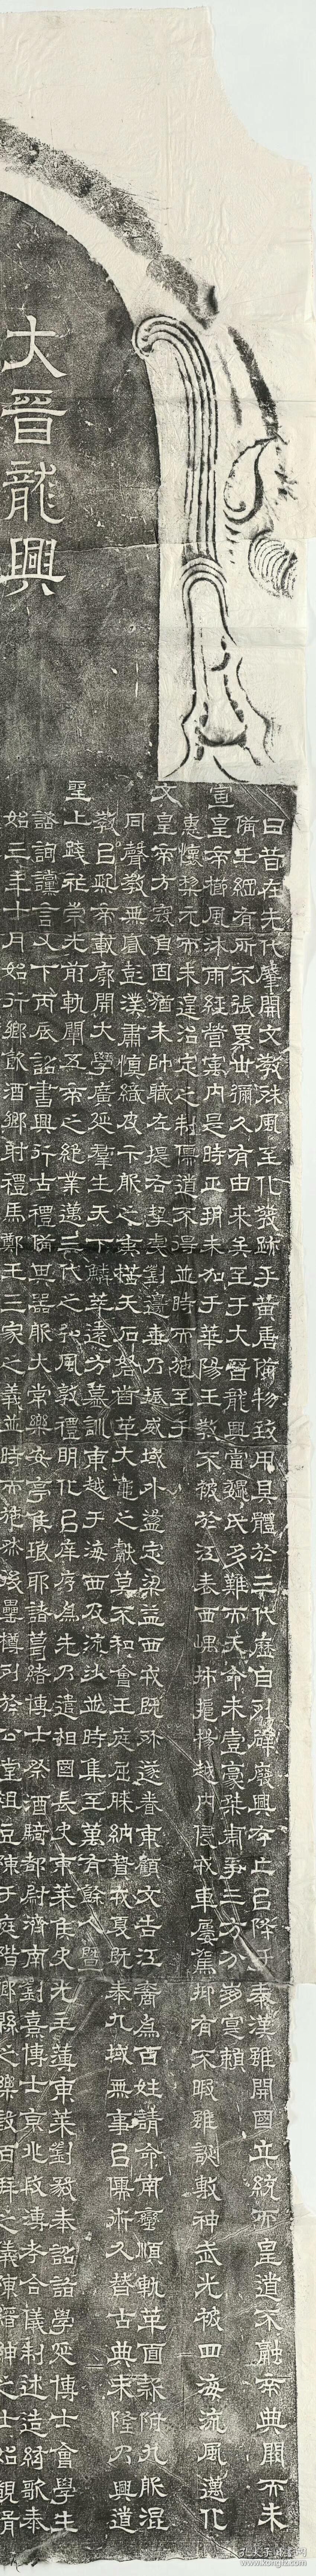 大晉龍興
曰昔在先代肇開文教殊風至化發跡乎黃唐備物致用具體於三代歷自列辟廢興存亡以降于秦漢雖開國立統而皇道不融帝典闕而未
備王綱有所不張累世彌久有由來矣至于大晉龍興當魏氏多難而天命未壹豪桀虎爭三方分崩寔賴
宣皇帝櫛風沐雨經營寓內是時正朔未加乎華陽王教不被於江表西嵎拌擾揚越內侵戎車屢駕抑有不暇雖誕敷神武光被四海流風邁化
惠懷黎元而未遑治定之制儒道不得並時而施至于
文皇帝方寇負固猶未帥職左提右挈虔劉邊垂乃振威域外盪定梁益西戎既殄遂眷東顧文告江裔為百姓請命南蠻順軌革面款附九服混
同聲教無貳尨濮肅慎織皮卞服之夷楛矢石砮齒革大龜之獻莫不和會王庭屈膝納贄戎夏既泰九域無事以儒術久替古典未隆乃興道
教以熙帝載廓開大學廣延群生天下鱗萃遠方慕訓東越于海西及流沙並時集至萬有餘人暨
聖上踐祚崇光前軌闡五帝之絕業邁三代之弘風敦禮明化以庠序為先乃遣相國長史東萊侯史光主簿東萊劉毅奉詔詣學延博士會學生
諮詢讜言又下丙辰詔書興行古禮備其器服大常樂安亭侯琅耶諸葛緒博士祭酒騎都尉濟南劉熹博士京兆段溥考合儀制述造絃歌泰
始三年十月始行鄉飲酒鄉射禮馬鄭王三家之義並時而施然後罍樽列於公堂俎豆陳于庭階鄉縣之樂設百拜之儀陳縉紳之士始覿
www.kongfz.com